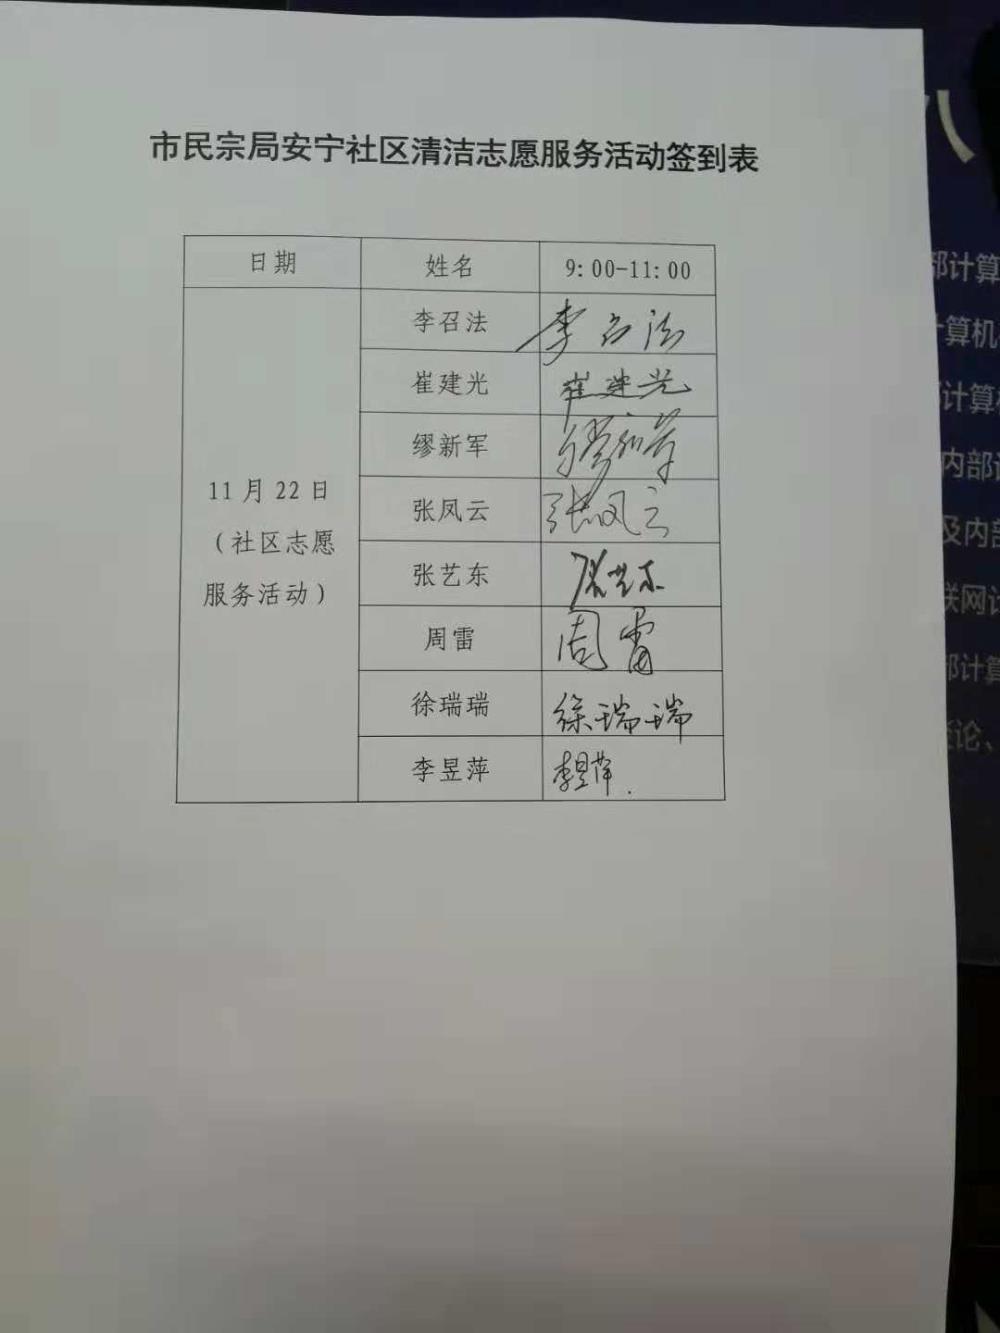 市民宗局安宁社区清洁志愿服务活动签到表
日期 姓名 9:00-11:00
11月22日
（社区志愿
服务活动）
李召法 李召法
崔建光 崔建光
缪新军 缪新军
张凤云 张凤云
张艺东 张艺东
周雷 周雷
徐瑞瑞 徐瑞瑞
李昱萍 李昱萍.
八
部计算
计算机
部计算机
内部
及内部
联网
部计算
论、